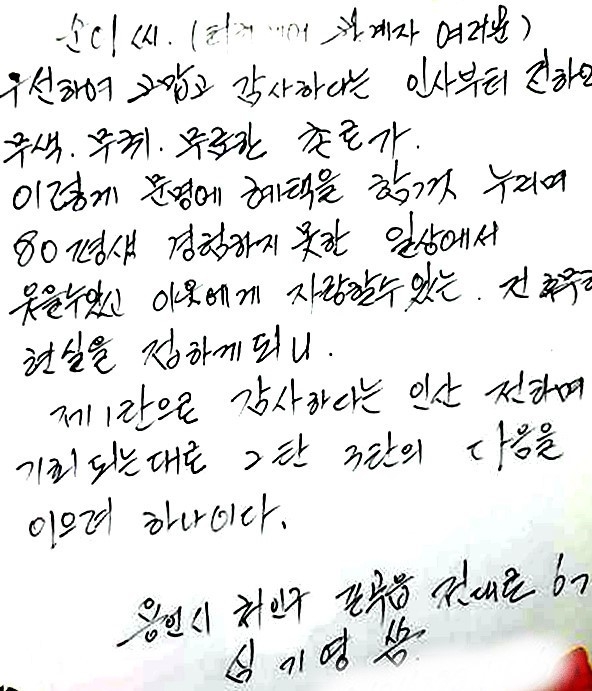 순이 씨. ( 관계자 여러분)
우선하여 고맙고 감사하다는 인사부터 전하
무색. 무취. 무료한 촌로가.
이렇게 문명에 혜택을 힘껏 누리며
80평생 경험하지 못한 일상에서
웃을수있고 이웃에게 자랑할수 있는. 전
현실을 접하게 되니.
제1탄으로 감사하다는 인산 전하며
기회 되는대로 2탄 3탄의 다음을
이으려 하나이다.
용인시 처인구 포곡읍 전대로 67
심기영